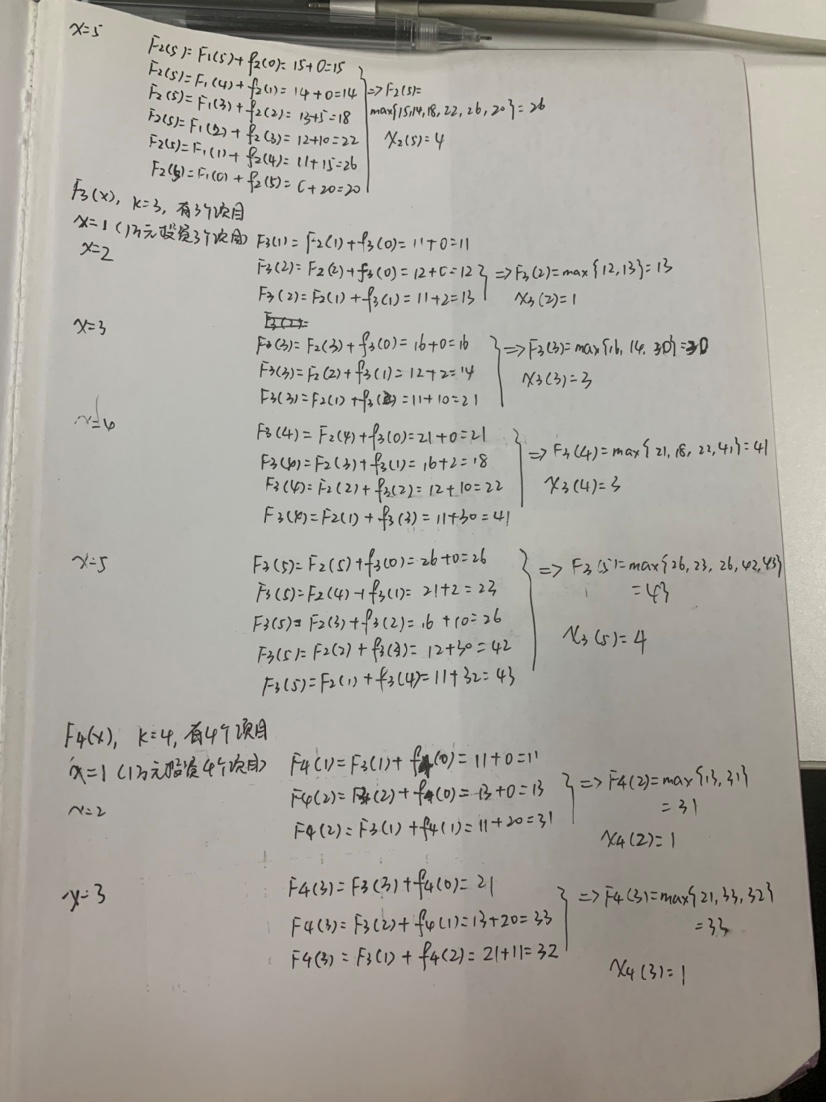 x=5
F2(5)=F1(5)+f2(0)=15+0=15
F2(5)=F1(4)+f2(1)=14+0=14
F2(5)=F1(3)+f2(2)=13+5=18
F2(5)=F1(2)+f2(3)=12+10=22
F2(5)=F1(1)+f2(4)=11+15=26
F2(5)=F1(0)+f2(5)=0+20=20
=>F2(5)=
max{15,14,18,22,26,20}=26
x2(5)=4
F3(x), k=3, 有3个项目
x=1 (1万元投资3个项目) F3(1)=F2(1)+f3(0)=11+0=11
x=2
F3(2)=F2(2)+f3(0)=12+0=12
F3(2)=F2(1)+f3(1)=11+2=13
=>F3(2)=max{12,13}=13
x3(2)=1
x=3
F3(3)=F2(3)+f3(0)=16+0=16
F3(3)=F2(2)+f3(1)=12+2=14
F3(3)=F2(1)+f3(2)=11+10=21
=>F3(3)=max{16, 14, 30}=30
x3(3)=3
x=4
F3(4)=F2(4)+f3(0)=21+0=21
F3(4)=F2(3)+f3(1)=16+2=18
F3(4)=F2(2)+f3(2)=12+10=22
F3(4)=F2(1)+f3(3)=11+30=41
=>F3(4)=max{21,18,22,41}=41
x3(4)=3
x=5
F3(5)=F2(5)+f3(0)=26+0=26
F3(5)=F2(4)+f3(1)=21+2=23
F3(5)=F2(3)+f3(2)=16+10=26
F3(5)=F2(2)+f3(3)=12+30=42
F3(5)=F2(1)+f3(4)=11+32=43
=>F3(5)=max{26,23,26,42,43}
=43
x3(5)=4
F4(x), k=4, 有4个项目
x=1 (1万元投资4个项目) F4(1)=F3(1)+f4(0)=11+0=11
x=2
F4(2)=F3(2)+f4(0)=13+0=13
F4(2)=F3(1)+f4(1)=11+20=31
=>F4(2)=max{13,31}
=31
x4(2)=1
x=3
F4(3)=F3(3)+f4(0)=21
F4(3)=F3(2)+f4(1)=13+20=33
F4(3)=F3(1)+f4(2)=21+11=32
=>F4(3)=max{21,33,32}
=33
x4(3)=1